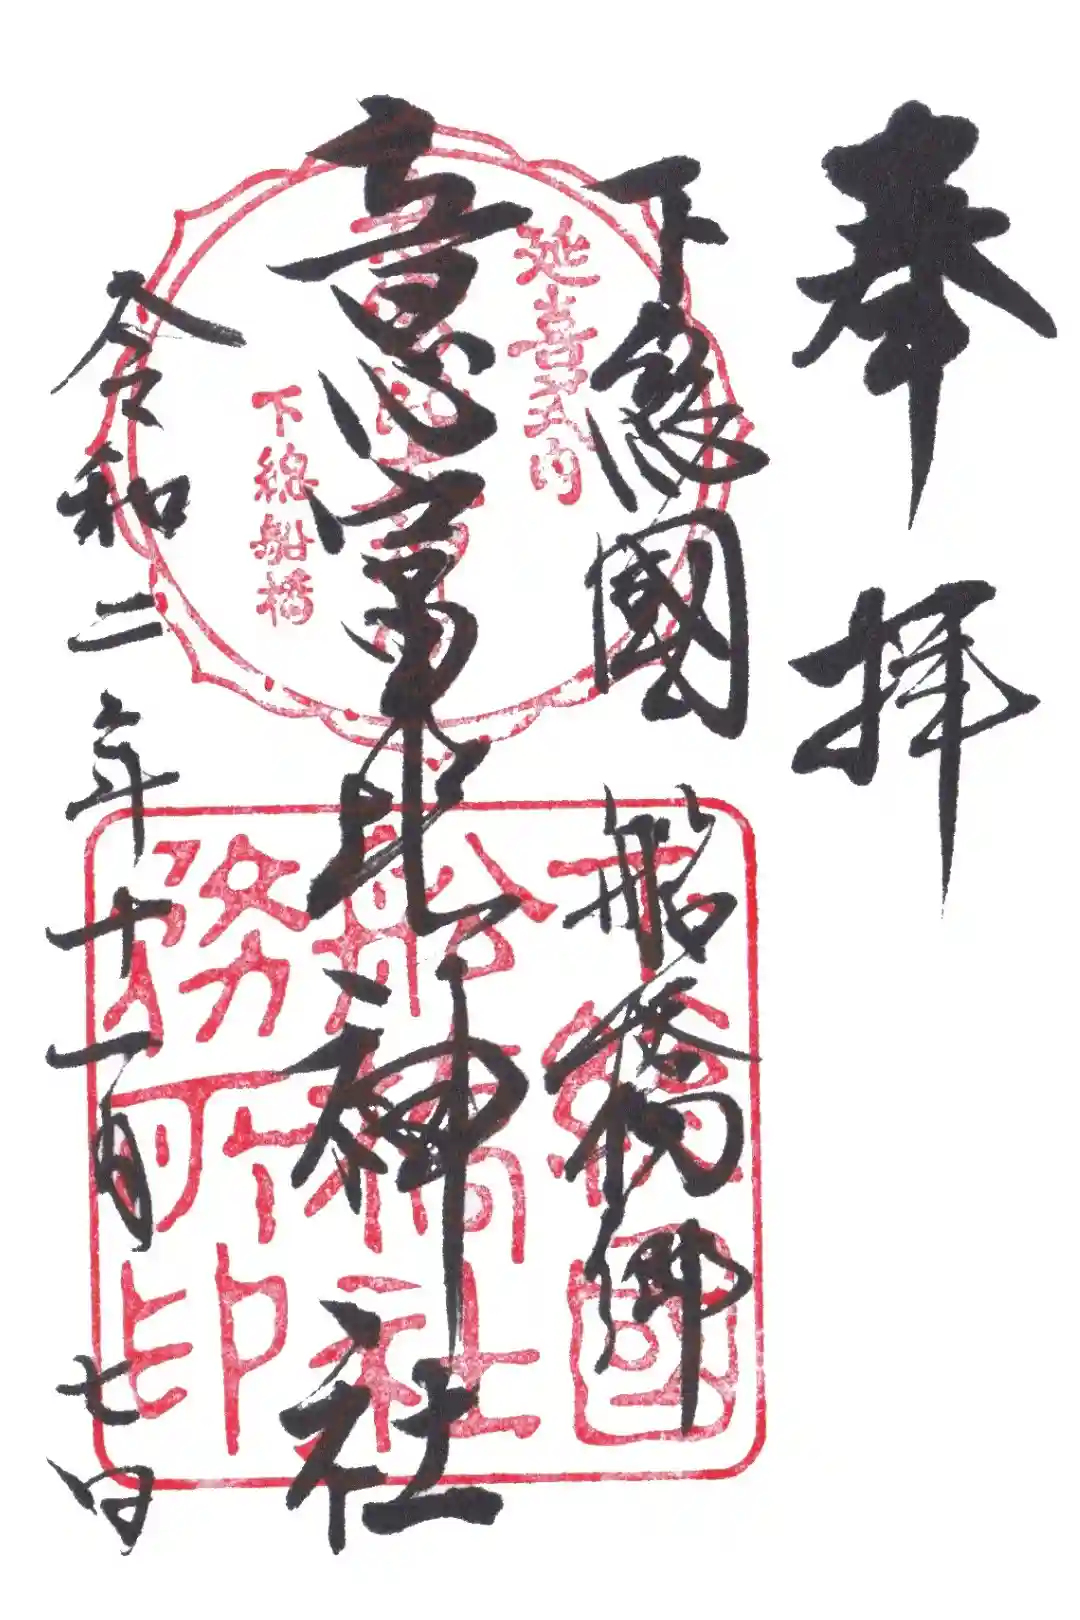 奉拝
下總國 船橋郷
意富比神社
令和二年十一月七日
延喜式内
意富比神社
下総船橋
下総國
船橋社
務所印